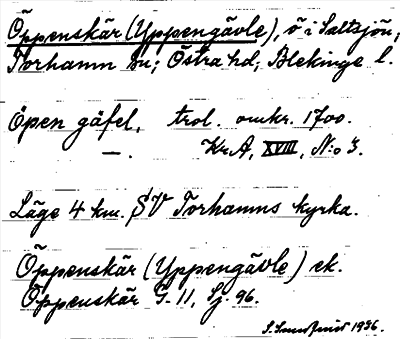 Öppenskär (Yppengävle), ö i Saltsjön,
Torhamn sn; Östra hd, Blekinge l.
Öpen gäfel, trol. omkr. 1700.
—. Kr.A, XVIII, N:o 3.
Läge 4 km. SV Torhamns kyrka.
Öppenskär (Yppengävle) ek.
Öppenskär G. 11, Sj. 96.
1936.